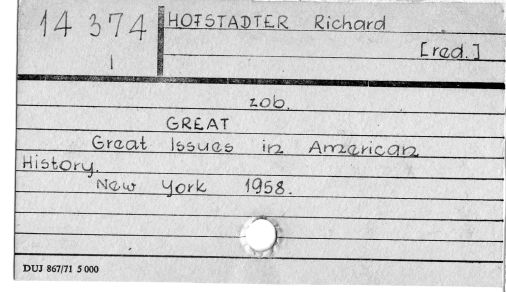 14 374
1
HOFSTADTER Richard
[red.]
zob.
GREAT
Great Issues in American
History.
New York 1958.
DUJ 867/71 5 000